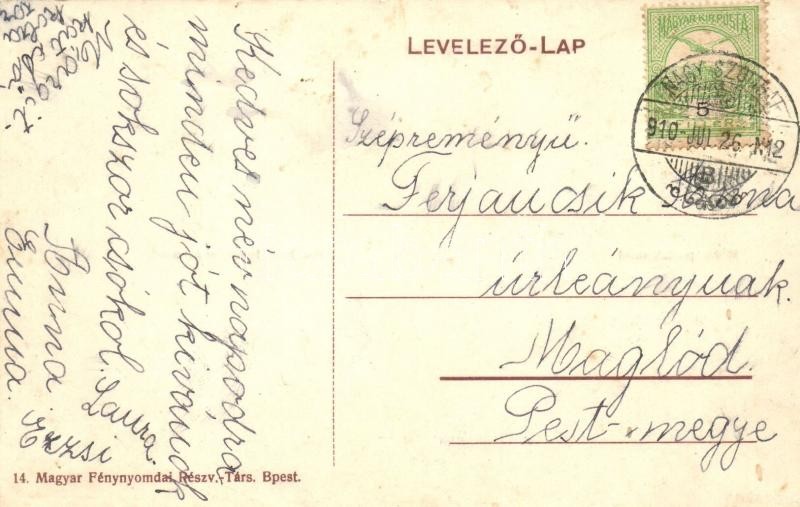 LEVELEZŐ-LAP
MAGYAR·KIR·POSTA
NAGY-SZOMBAT
910 JUL 26 N12
B
Szépreményű.
Ferjancsik Anna
úrleánynak.
Maglód.
Pest-megye
Kedves név napodra
minden jót kivánok
és sokszor csókol. Laura.
Anna Ezzsi
Emma.
14. Magyar Fénynyomdai Részv.-Társ. Bpest.